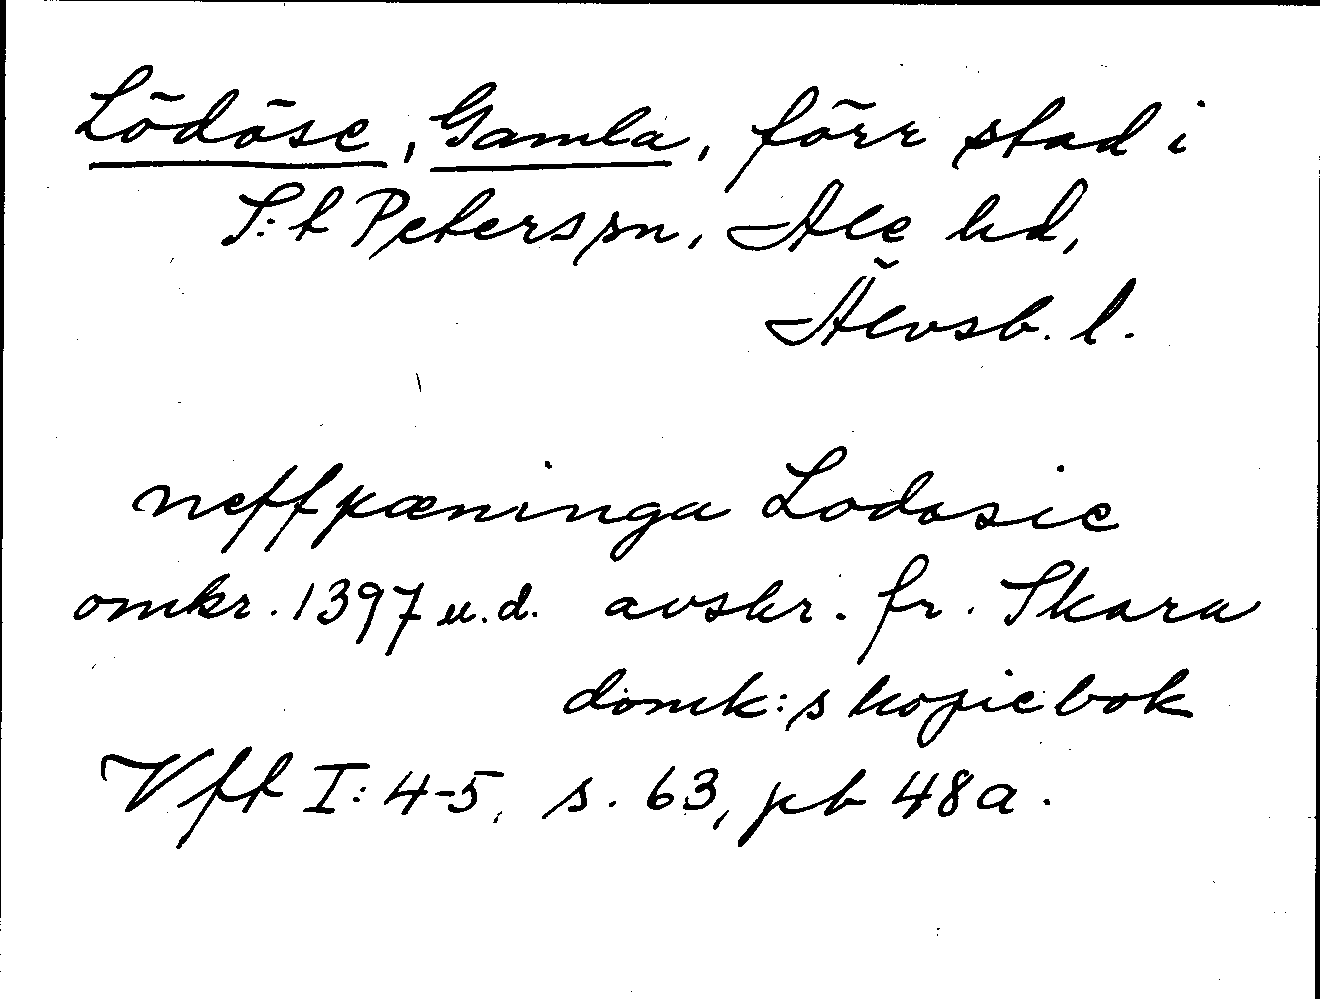 Lödöse, Gamla, förr stad i
S:t Peters sn, Ale hd,
Älvsb. l.
neffpæninga Lodosie
omkr. 1397 u.d. avskr. fr. Skara
domk:s kopiebok
Vft I: 4-5, s. 63, pb 48a.